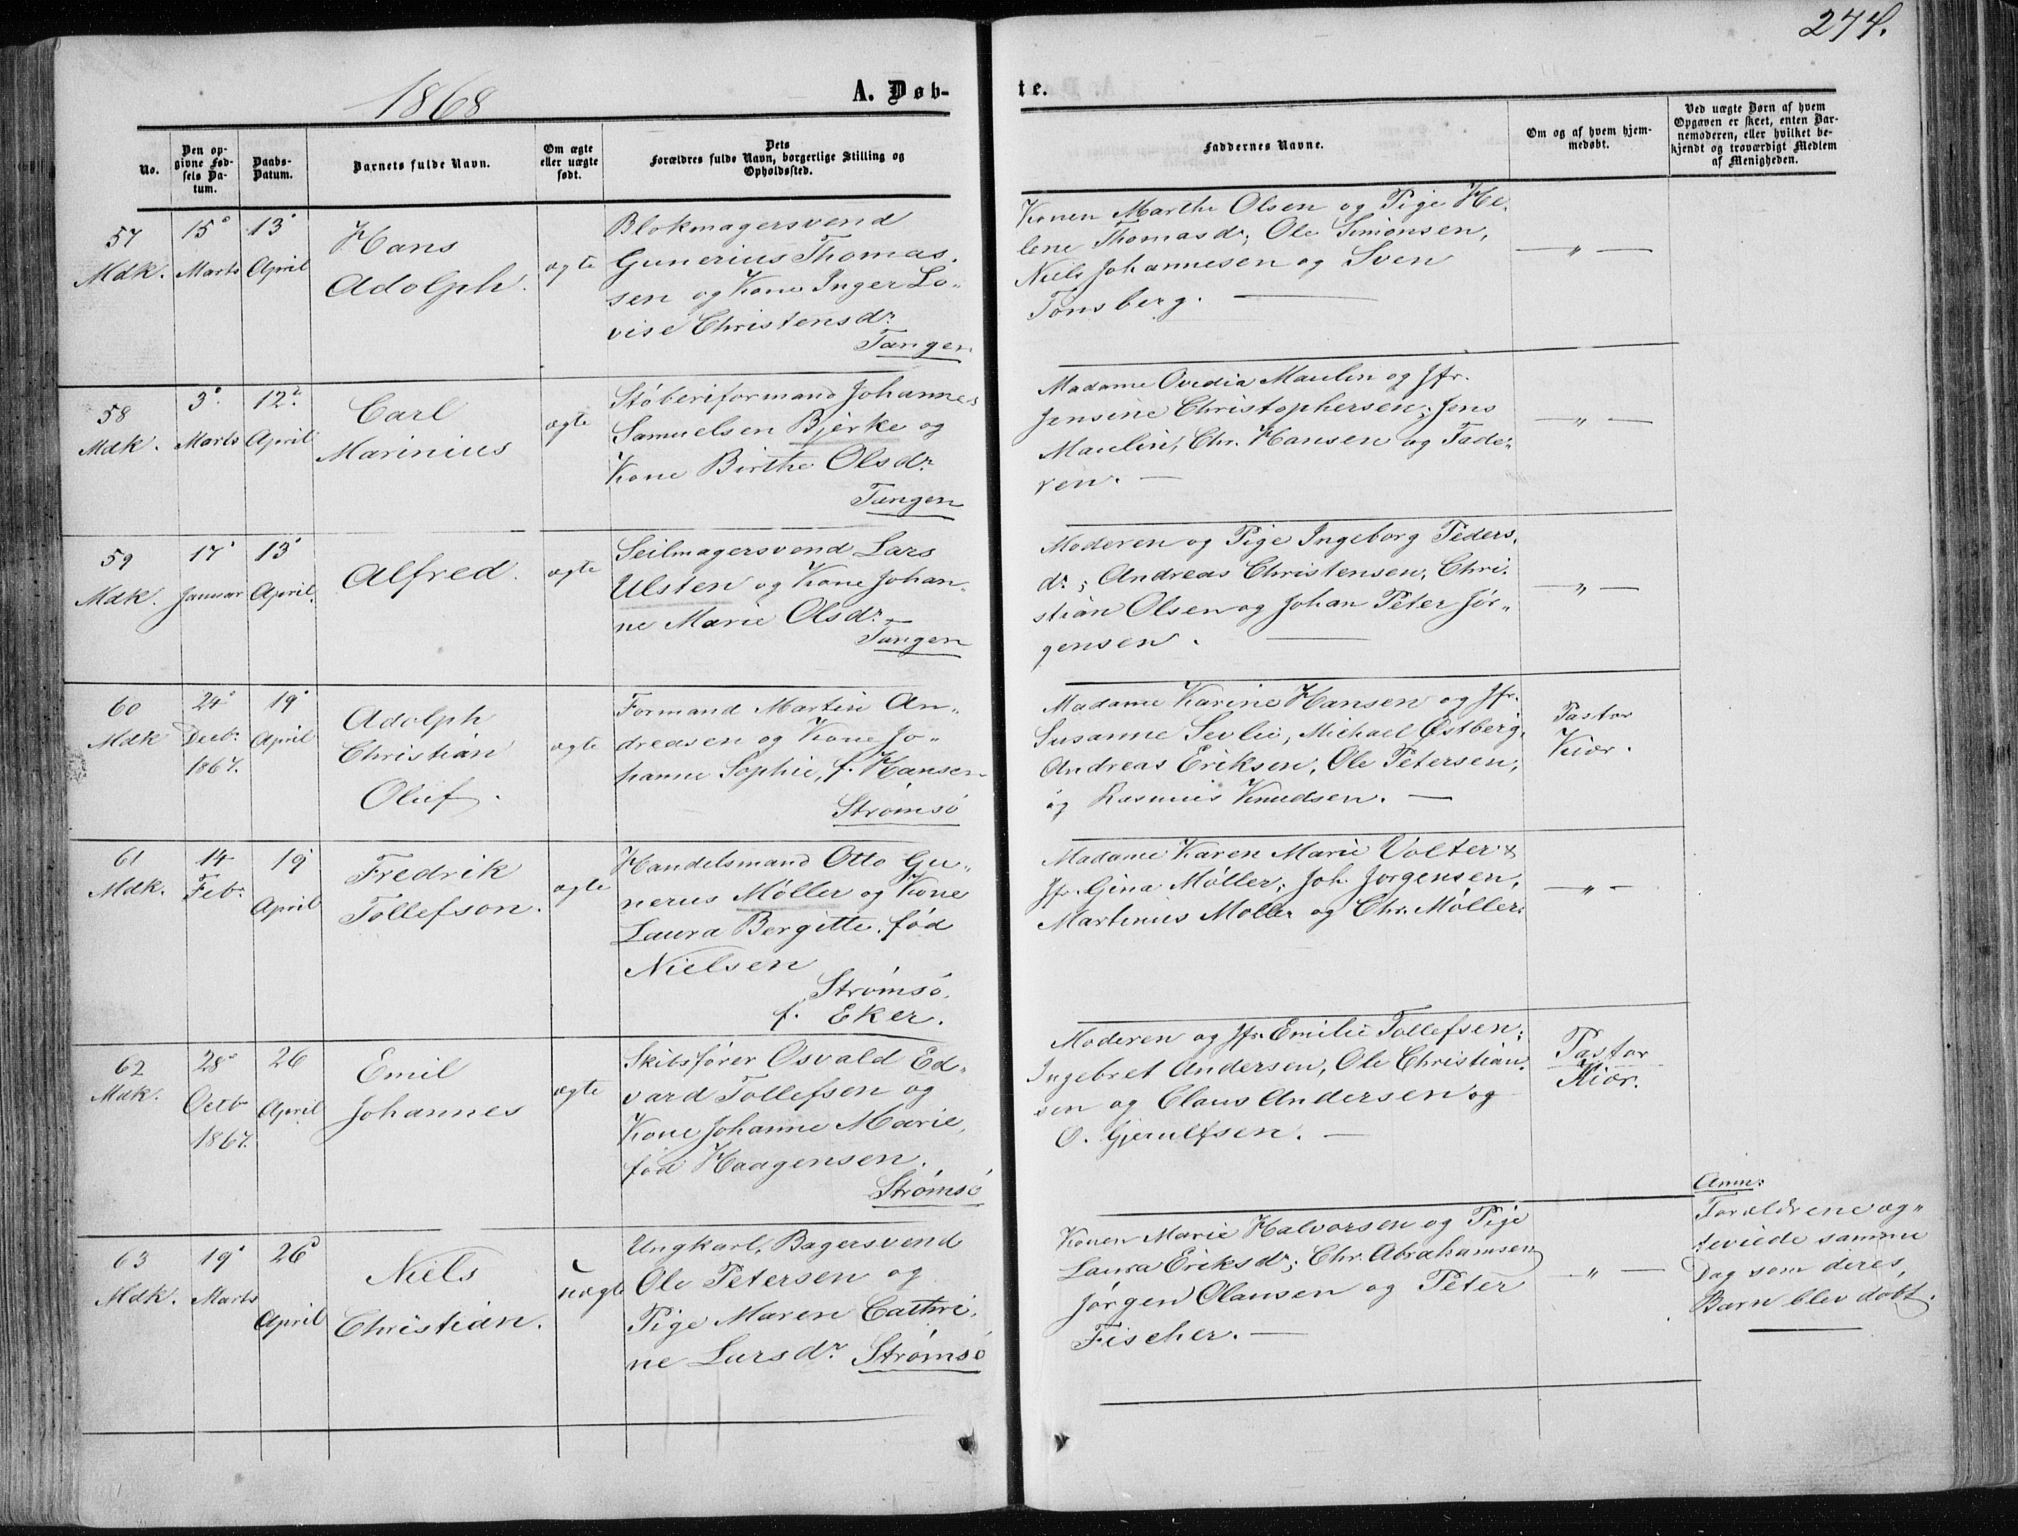 274.
1868
A. Døb-
te.
No.
Den op-
givne Fød-
sels Da-
tum.
Daabs-
Datum.
Barnets fulde Navn.
Om ægte
eller uægte
født.
Dets
Forældres fulde Navn, borgerlige Stilling og
Opholdssted.
Faddernes Navne.
Om og af hvem hjem-
medøbt.
Ved uægte Børn af hvem
Opgaven er skeet, enten Bar-
nemoderen, eller hvilket be-
kjendt og troværdigt Medlem
af Menigheden.
57
Mdk.
15
Marts
13
April
Hans
Adolph.
ægte
Blokmagersvend
Gunerius Thomas.
sen og Kone Inger Lo-
vise Christensdr.
Tangen
Konen Marthe Olsen og Pige He-
lene Thomasdr, Ole Simonsen,
Niels Johannesen og Sven
Tønsberg. —
— „ —
58
Mdk.
3
Marts
12
April
Carl
Marinius
ægte
Støberiformand Johannes
Samuelsen Bjerke og
Kone Birthe Olsdr.
Tangen
Madame Ovidia Maulin og Jfr.
Jensine Christophersen, Jens
Maulin, Chr. Hansen og Fade-
ren. —
— „ —
59
Mdk.
17
Januar
13
April.
Alfred.
ægte
Seilmagersvend Lars
Ulsten og Kone Johan-
ne Marie Olsdr.
Tangen
Moderen og Pige Ingeborg Peders.
dr.; Andreas Christensen, Chri-
stian Olsen og Johan Peter Jør-
gensen. —
— „ —
60
Mdk
24
Decbr.
1867.
19
April
Adolph
Christian
Oluf.
ægte
Formand Martin An-
dreasen og Kone Jo-
hanne Sophie, f. Hansen
Strømsø
Madame Karine Hansen og Jfr.
Susanne Sevlie, Michael Østberg,
Andreas Eriksen, Ole Petersen,
og Rasmus Knudsen. —
Pastor
Kiær.
61
Mdk.
14
Febr.
19
April
Fredrik
Tollefson.
ægte
Handelsmand Otto Gu-
nerus Møller og Kone
Laura Bergitte, fød
Nielsen
Strømsø.
f. Eker.
Madame Karen Marie Volter &
Jfr. Gina Møller; Joh. Jørgensen,
Martinius Møller og Chr. Møller.
— „ —
62
Mdk.
28
Octb
1867.
26
April
Emil
Johannes
ægte
Skibsfører Osvald Ed-
vard Tollefsen og
Kone Johanne Marie,
fød Haagensen.
Strømsø
Moderen og Jfr. Emilie Tollefsen;
Ingebret Andersen, Ole Christian-
sen og Claus Andersen og
O. Gjerulfsen. —
Pastor
Kiær.
63
Mdk.
19
Marts
26
April
Niels
Christian.
uægte
Ungkarl, Bagersvend
Ole Petersen og
Pige Maren Cathri-
ne Larsdr. Strømsø
Konen Marie Halvorsen og Pige
Laura Eriksdr; Chr. Abrahamsen,
Jørgen Olausen og Peter
Fischer. —
— „ —
Anm:
Forældrene æg-
teviede samme
Dag som deres
Barn blev døbt.